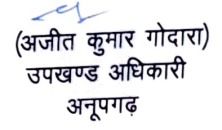 (अजीत कुमार गोदारा)
उपखण्ड अधिकारी
अनूपगढ़